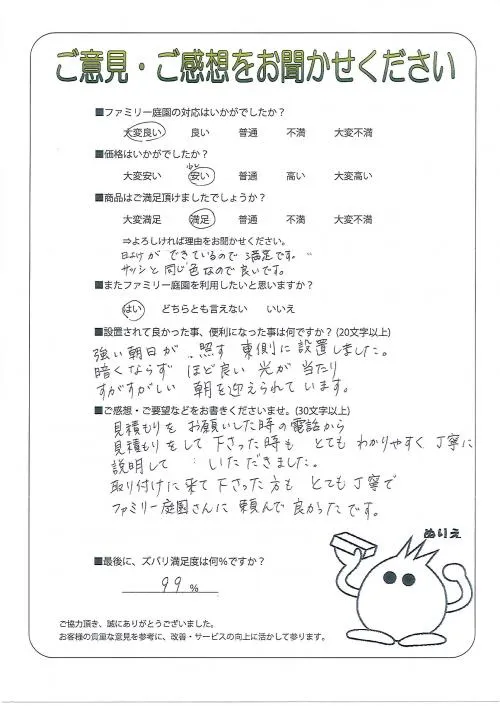 ご意見・ご感想をお聞かせください
■ファミリー庭園の対応はいかがでしたか？
大変良い 良い 普通 不満 大変不満
■価格はいかがでしたか？
大変安い 安い 普通 高い 大変高い
■商品はご満足頂けましたでしょうか？
大変満足 満足 普通 不満 大変不満
⇒よろしければ理由をお聞かせください。
日よけが できているので 満足です。
サッシと 同じ色なので良いです。
■またファミリー庭園を利用したいと思いますか？
はい どちらとも言えない いいえ
■設置されて良かった事、便利になった事は何ですか？(20文字以上)
強い朝日が 照す 東側に設置しました。
暗くならず ほど良い 光が 当たり
すがすがしい 朝を迎えられています。
■ご感想・ご要望などをお書きくださいませ。(30文字以上)
見積もりを お願いした時の電話から
見積もりをして下さった時も とても わかりやすく 丁寧に
説明して いただきました。
取り付けに来て下さった方も とても丁寧で
ファミリー庭園さんに 頼んで 良かったです。
ぬりえ
■最後に、ズバリ満足度は何％ですか？
99 %
ご協力頂き、誠にありがとうございました。
お客様の貴重な意見を参考に、改善・サービスの向上に活かして参ります。